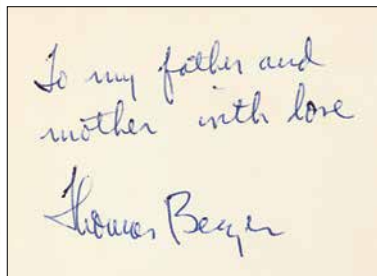 To my father and
mother with love
Thomas Berger